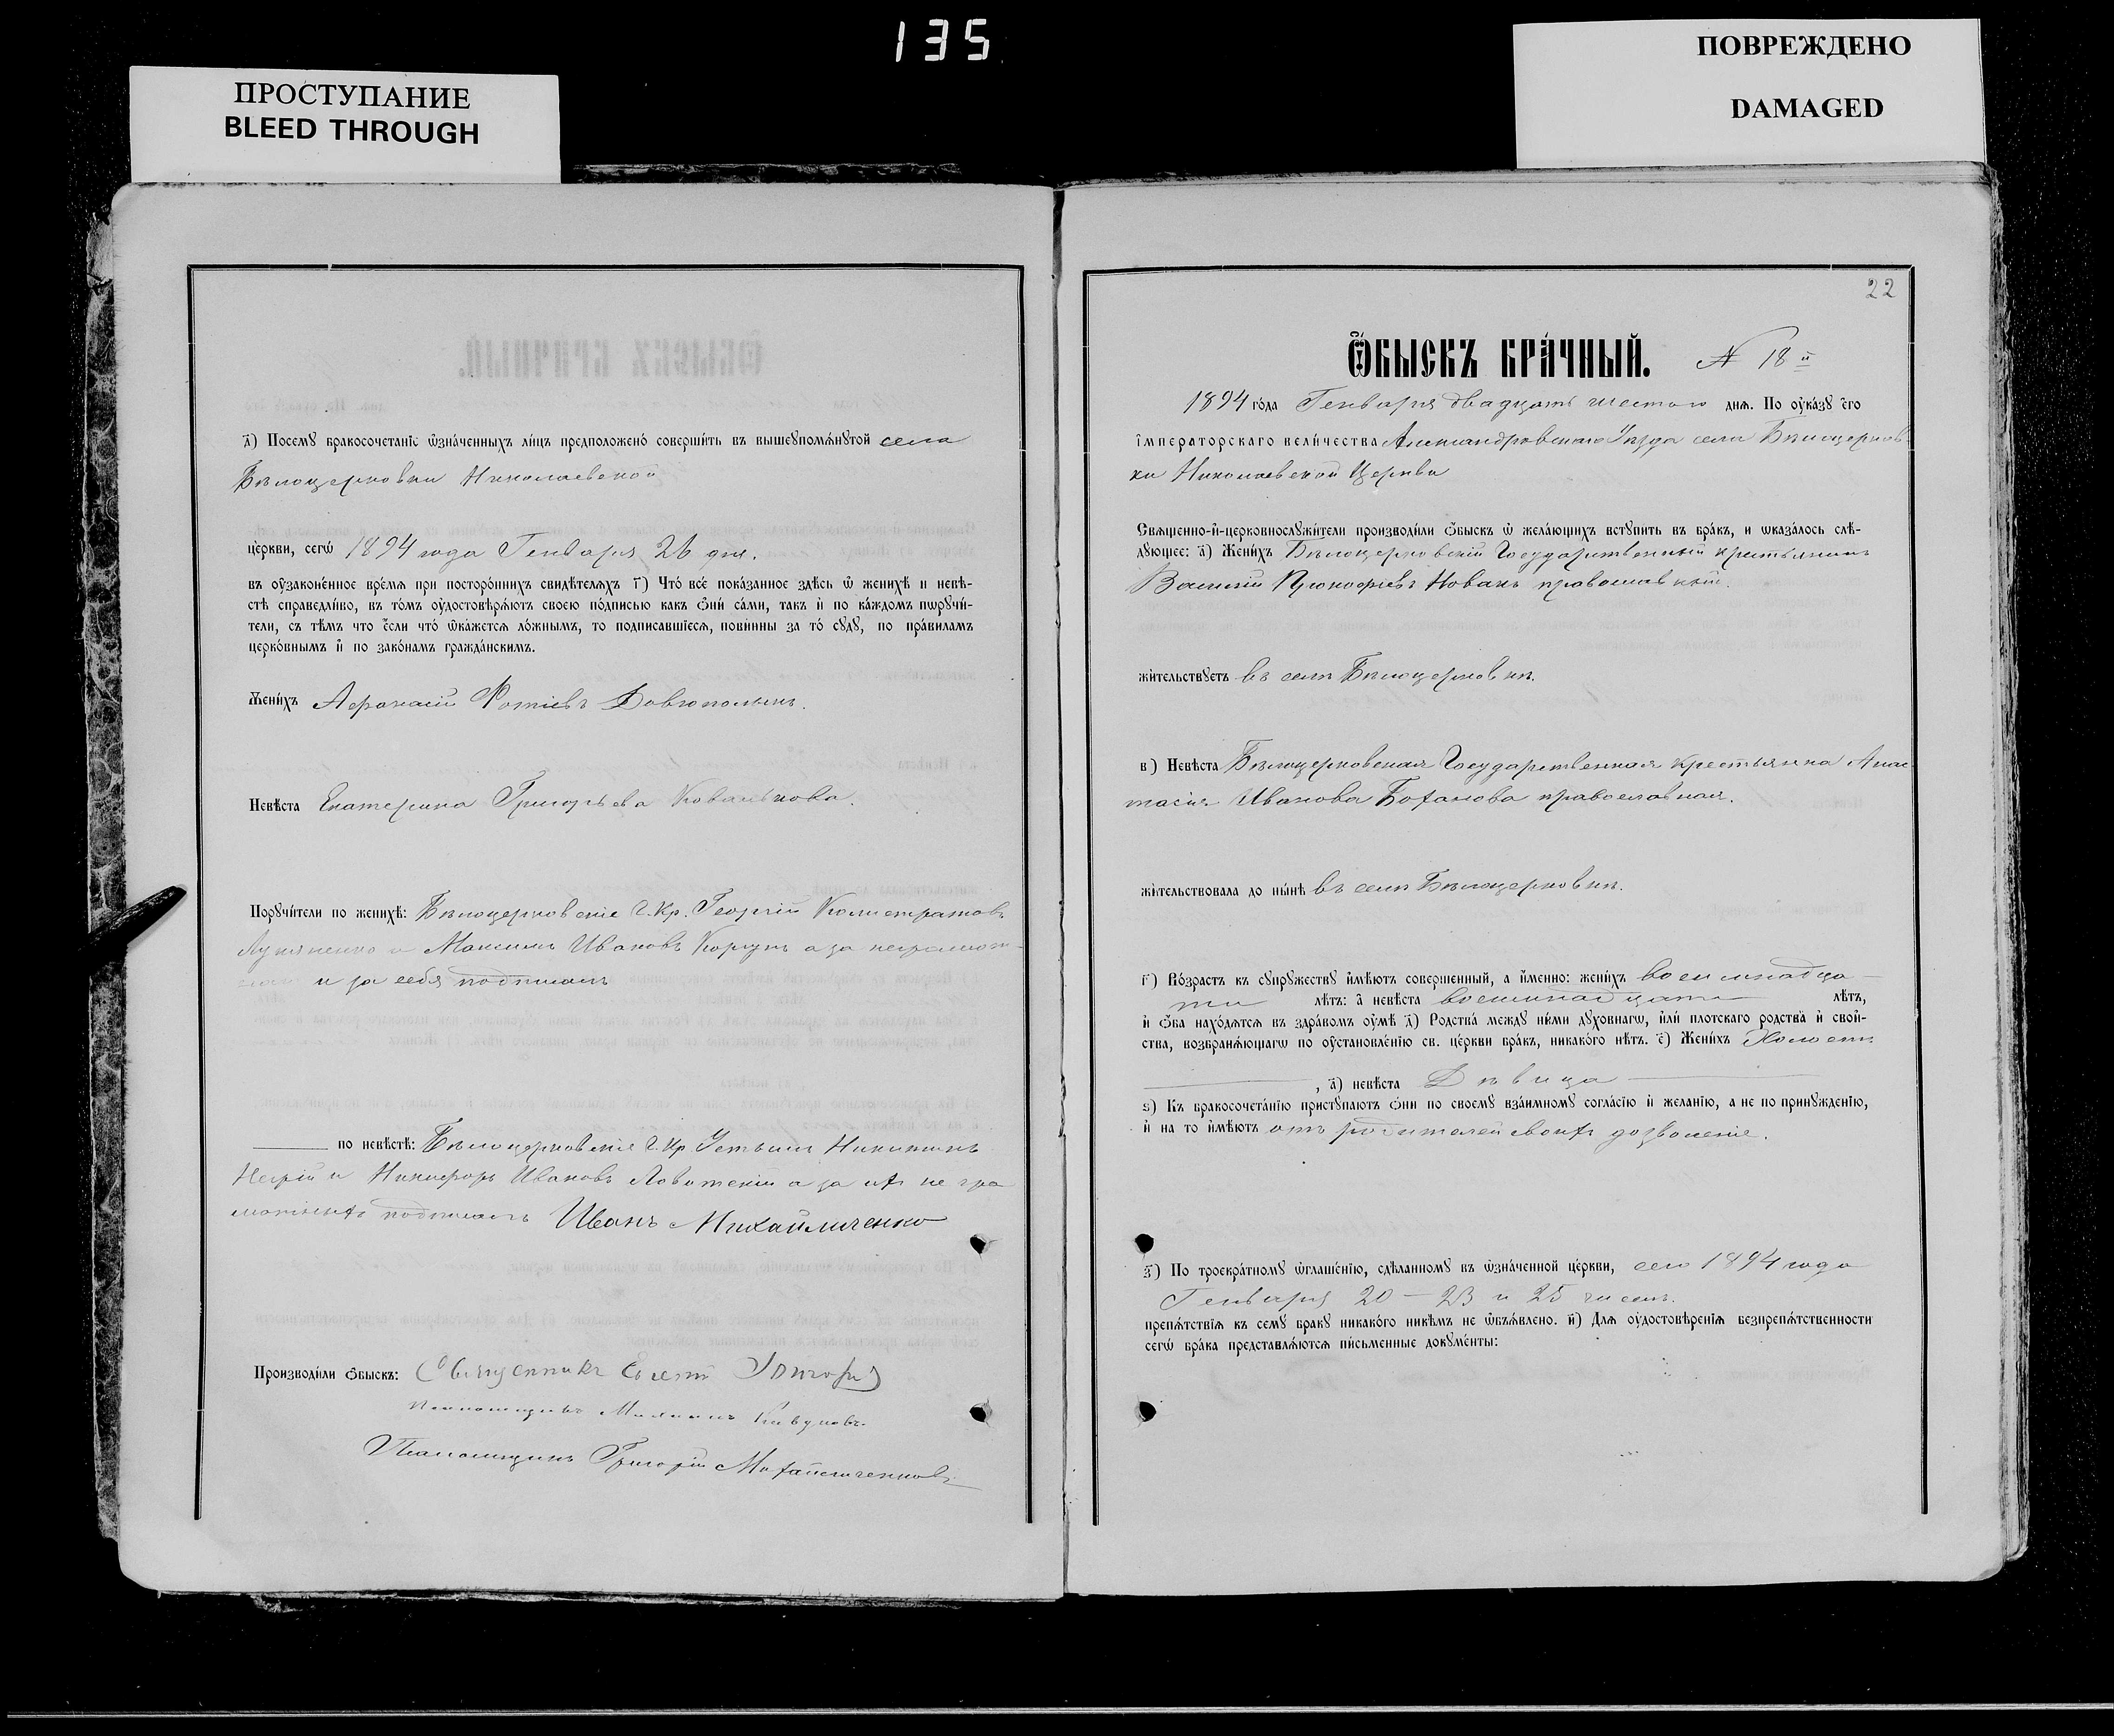 135
ПРОСТУПАНИЕ
BLEED THROUGH
ПОВРЕЖДЕНО
DAMAGED
д҃) Посемꙋ бракосочетанїе ѡ҆зна́ченныхъ ли́цъ предположено̀ соверши́ть въ вышеꙋпомѧ́нꙋтой села
Бѣлоцерковки Николаевской
це́ркви, сегѡ̀ 1894 года Генваря 26 дня.
въ ᲂу҆зако́ненное вре́мѧ при посторо́ннихъ свидѣ́телѧхъ г҃) Что̀ всѐ пока́занное здѣ́сь ѡ҆ женихѣ̀ и невѣ́-
стѣ справедли́во, въ то́мъ ᲂу҆достовѣрѧ́ютъ своею по́дписью какъ ѻ҆нѝ са́ми, такъ и҆ по ка́ждомъ пѡрꙋчи́-
тели, съ тѣ́мъ что̀ є҆́сли что̀ ѡ҆ка́жетсѧ ло́жнымъ, то подписавшїесѧ, пови́нны за то̀ сꙋдꙋ̀, по пра́виламъ
церко́внымъ и҆ по зако́намъ гражда́нскимъ.
Жени́хъ Афанасій Фотіевъ
Невѣ́ста Екатерина Григорьева Ковалькова.
Порꙋчи́тели по женихѣ̀: Бѣлоцерковскіе Г. Кр. Георгій Калистратовъ
Лукяненко и Максимъ Ивановъ Коржъ а за неграмот-
и за себя подписалъ
по невѣ́стѣ: Бѣлоцерковскіе Г. Кр Устинъ Никитинъ
Негрій и Никифоръ Ивановъ а за ихъ не гра
мотныхъ подписалъ Иванъ Михайличенко
Производи́ли ѻ҆́быскъ: Священникъ Григорій
Псаломщикъ
Псаломщикъ Григорій Михайличенковъ
22
Ѻ҆́БЫСКЪ БРА́ЧНЫЙ. № 18й
1894 го́да Генваря двадцать шестого днѧ. По ᲂу҆ка́зꙋ є҆го̀
і҆мпера́торскаго вели́чества Александровскаго Уѣзда села Бѣлоцерков-
ки Николаевской Церкви
Свѧще́нно-и҆-церковнослꙋжи́тели производи́ли ѻ҆́быскъ ѡ҆ жела́ющихъ вступи́ть въ бра́къ, и ѡказа́лось слѣ́-
дꙋющее: а҃) Жени́хъ Бѣлоцерковскій Государственный крестьянинъ
Василій Прокофіевъ Новакъ православный.
жи́тельствꙋетъ въ селѣ Бѣлоцерковкѣ.
в҃) Невѣ́ста Бѣлоцерковская Государственная крестьянка Анас
тасія Иванова Боханова православная.
жи́тельствовала до ны́нѣ въ селѣ Бѣлоцерковкѣ.
г҃) Во́зрастъ къ сꙋпрꙋ́жествꙋ и҆мѣ́ютъ соверше́нный, а и҆́менно: жени́хъ восемнадца-
ти лѣ́тъ: а҆ невѣ́ста восемнадцати лѣ́тъ,
и҆ ѻ҆́ба нахо́дѧтсѧ въ здра́вомъ ᲂу҆мѣ̀ д҃) Родства̀ междꙋ ни́ми дꙋхо́внагѡ, и҆лѝ пло́тскаго родства̀ и҆ сво́й-
ства, возбранѧ́ющагѡ по ᲂу҆становле́нїю св. це́ркви бра́къ, никако́го нѣ́тъ. є҃) Жени́хъ Холостъ
, а҆) невѣ́ста Дѣвица
ѕ҃) Къ бракосочета́нїю пристꙋпа́ютъ ѻ҆нѝ по своемꙋ̀ взаи́мномꙋ согла́сїю и҆ жела́нїю, а не по принꙋжде́нїю,
и҆ на то и҆мѣ́ютъ отъ родителей своихъ дозволеніе.
з҃) По троекра́тномꙋ ѡ҆глаше́нїю, сдѣ́ланномꙋ въ ѡ҆зна́ченной це́ркви, сего 1894 года
Генваря 20 – 23 и 25 числъ.
препѧ́тствїѧ къ семꙋ̀ бра́кꙋ никако́го никѣ́мъ не ѡ҆бъѧ́влено. и҃) Длѧ ᲂу҆достовѣре́нїѧ безпрепѧ́тственности
сегѡ̀ бра́ка представлѧ́ютсѧ пи́сьменные докꙋме́нты: